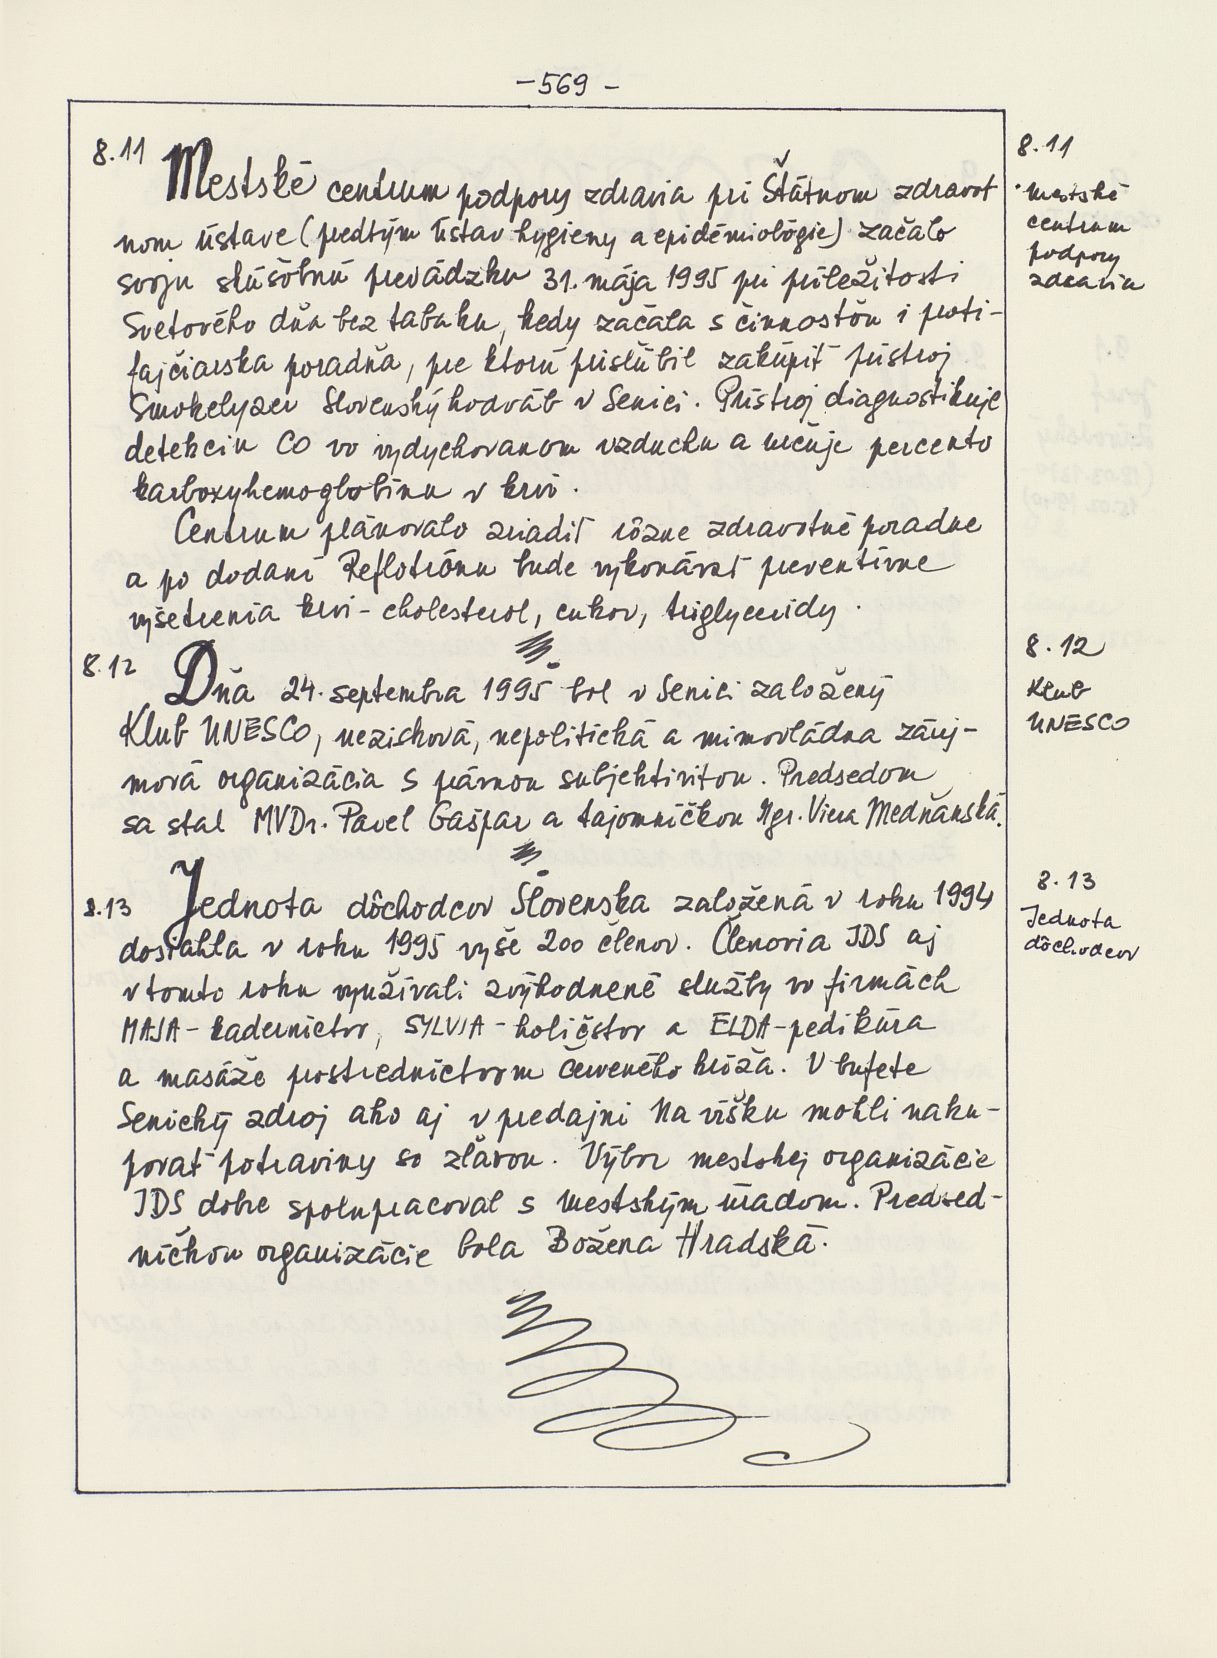 -569-
8.11 Mestské centrum podpory zdravia pri Štátnom zdravot
nom ústave (predtým Ústav hygieny a epidémiológie) začalo
svoju skúšobnú prevádzku 31. mája 1995 pri príležitosti
Svetového dňa bez tabaku, kedy začala s činnosťou i proti-
fajčiarska poradňa, pre ktorú prisľúbil zakúpiť prístroj
Smokelyzer Slovenský hodváb v Senici. Prístroj diagnostikuje
detekciu CO vo vydychovanom vzduchu a určuje percento
karboxyhemoglobínu v krvi.
Centrum plánovalo zriadiť rôzne zdravotné poradne
a po dodaní Reflotrónu bude vykonávať preventívne
vyšetrenia krvi - cholesterol, cukor, triglyceridy.
8.12 Dňa 24. septembra 1995 bol v Senici založený
Klub UNESCO, nezisková, nepolitická a mimovládna záuj-
mová organizácia s právnou subjektivitou. Predsedom
sa stal MVDr. Pavel Gašpar a tajomníčkou Mgr. Viera Medňanská.
8.13 Jednota dôchodcov Slovenska založená v roku 1994
dosiahla v roku 1995 vyše 200 členov. Členovia JDS aj
v tomto roku využívali zvýhodnené služby vo firmách
MAJA - kaderníctvo, SYLVIA - holičstvo a ELDA - pedikúra
a masáže prostredníctvom Červeného kríža. V bufete
Senický zdroj ako aj v predajni Na víšku mohli naku-
povať potraviny so zľavou. Výbor mestskej organizácie
JDS dobre spolupracoval s Mestským úradom. Predsed-
níčkou organizácie bola Božena Hradská.
8.11
Mestské
centrum
podpory
zdravia
8.12
Klub
UNESCO
8.13
Jednota
dôchodcov